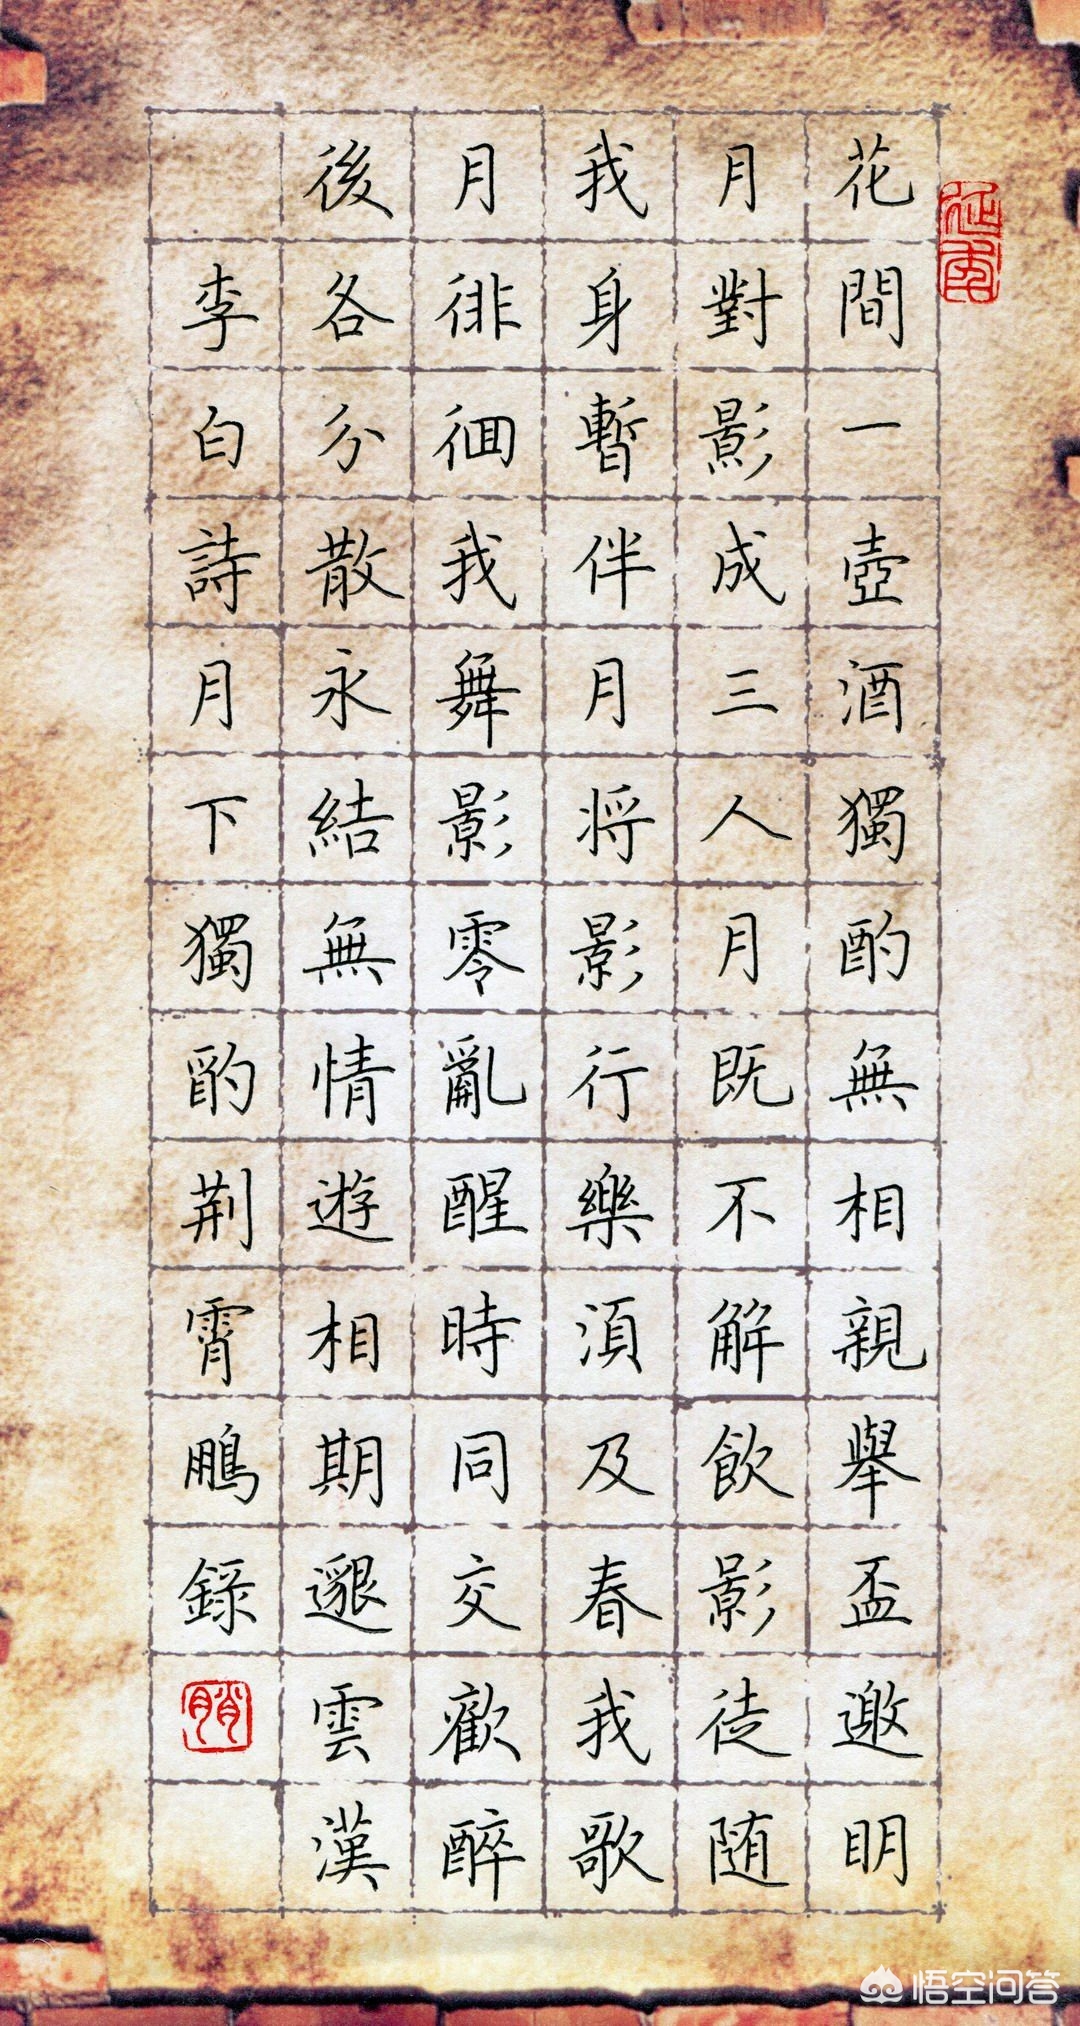 花間一壺酒獨酌無相親舉盃邀明
月對影成三人月既不解飲影徒随
我身暫伴月将影行樂湏及春我歌
月徘徊我舞影零亂醒時同交歡醉
後各分散永結無情遊相期邈雲漢
李白詩月下獨酌荆霄鵬錄
悟空问答